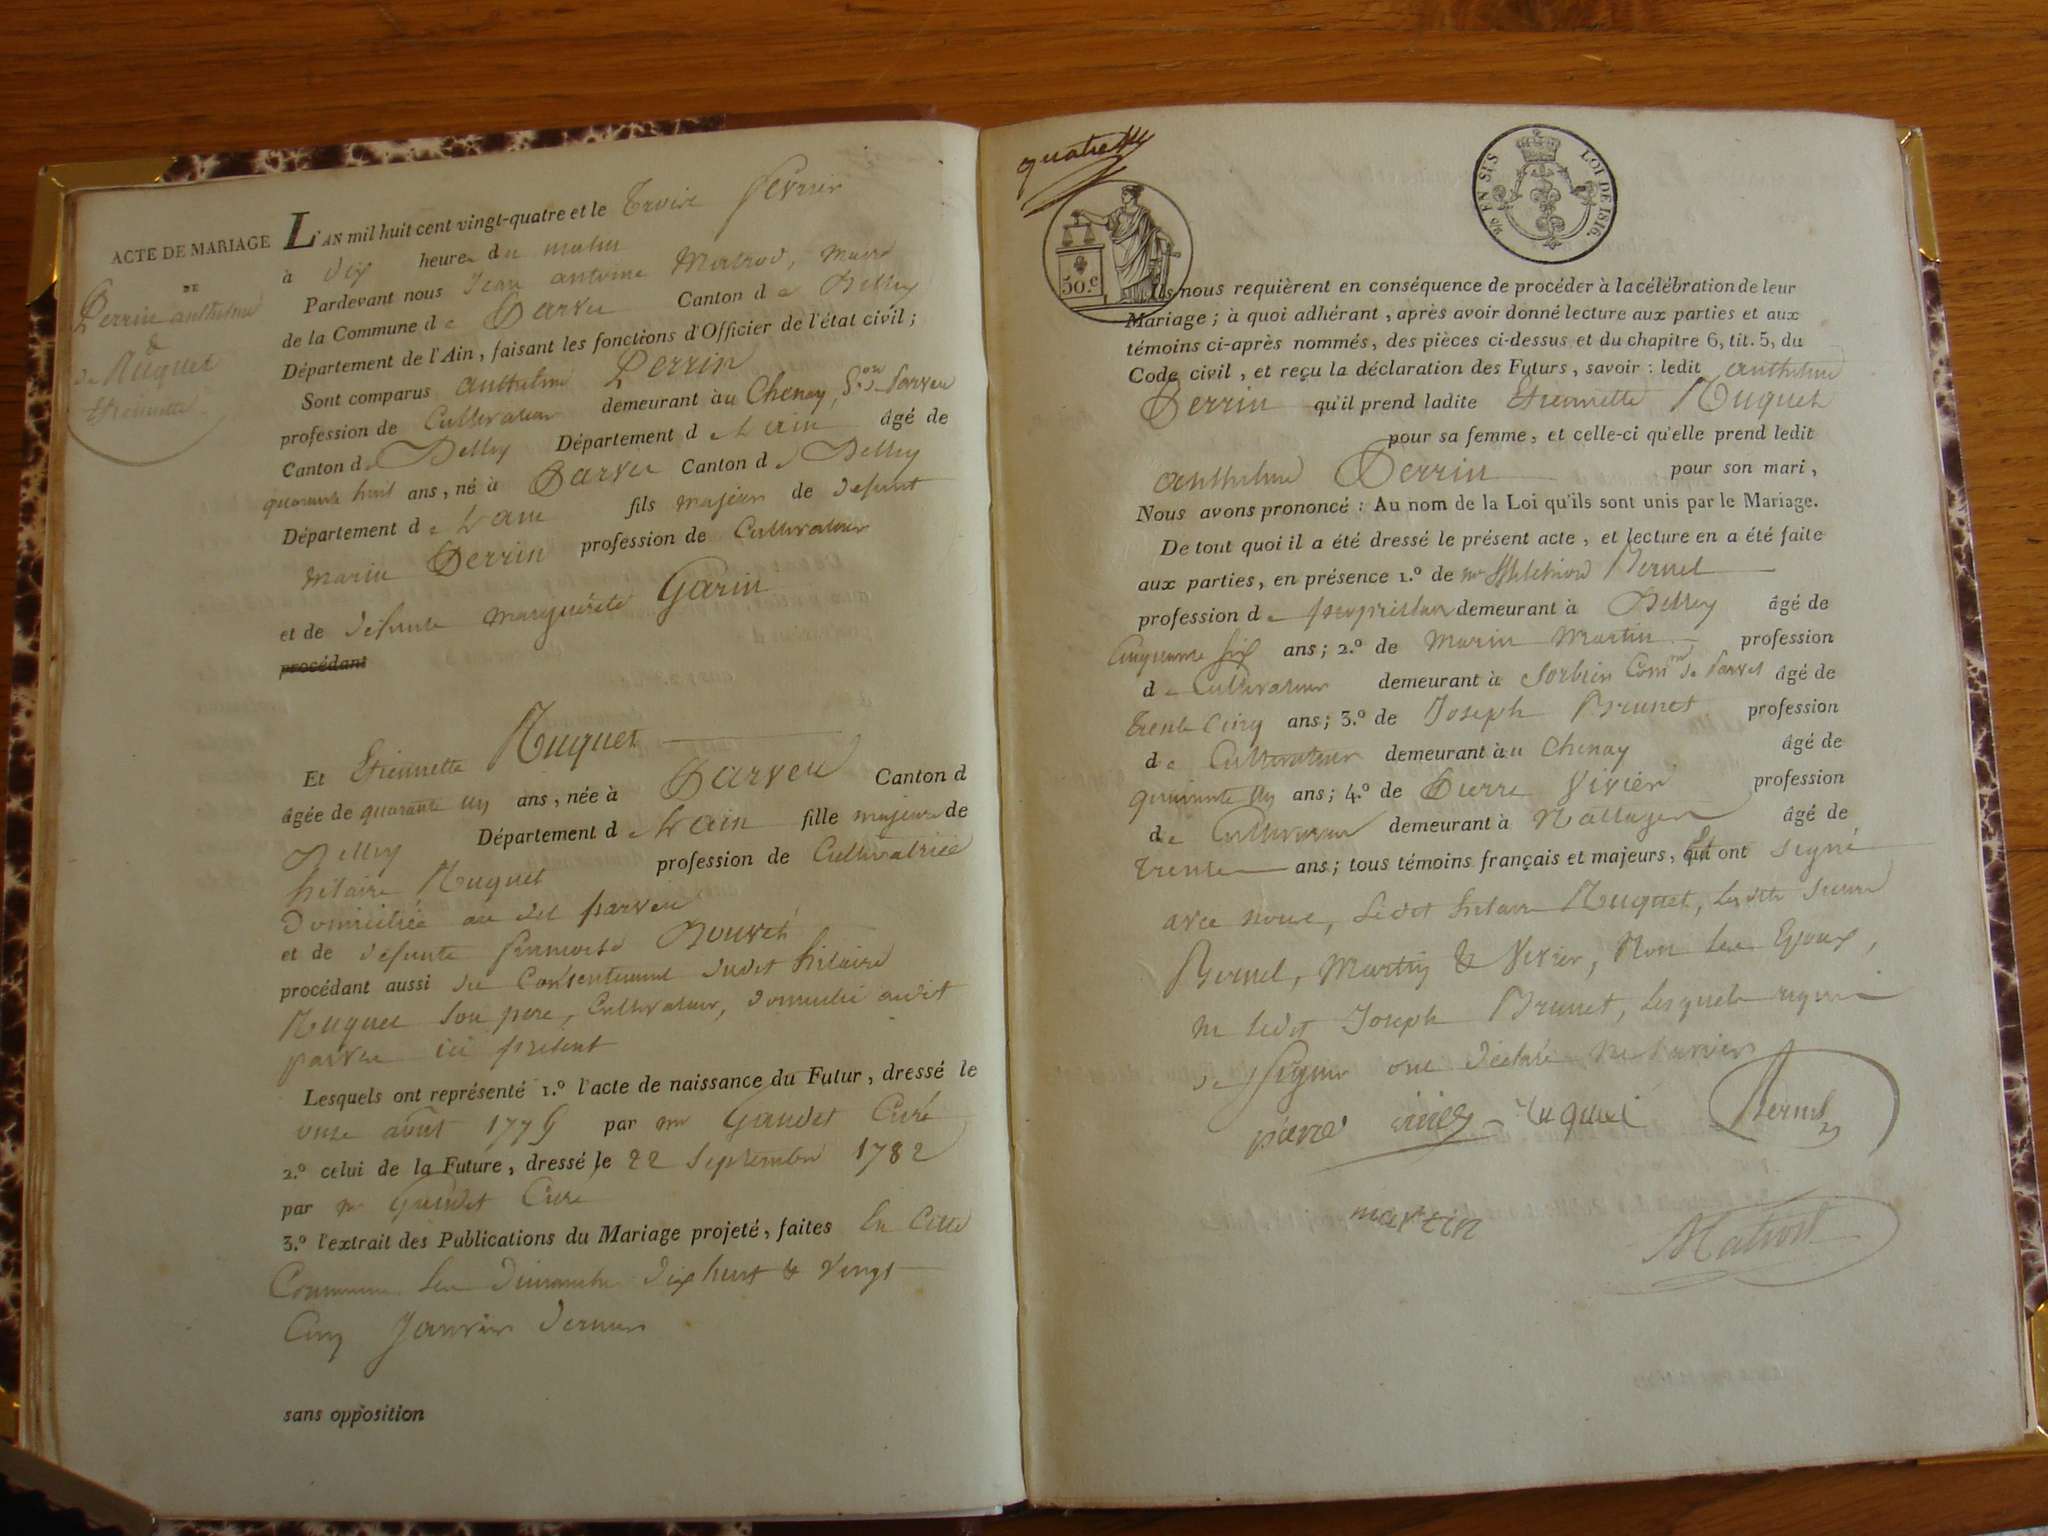 ACTE DE MARIAGE
DE
Perrin anthelme
&
de Huguet
Etiennette
L'AN mil huit cent vingt-quatre et le Trois fevrier
à dix heures du matin
Pardevant nous Jean antoine maire
de la Commune de Parves Canton de Belley
Département de l'Ain, faisant les fonctions d'Officier de l'état civil;
Sont comparus anthelme Perrin
profession de Cultivateur demeurant au Chenay, Parves
Canton de Belley Département de L'ain âgé de
quarante huit ans, né à Parves Canton de Belley
Département de L'ain fils majeur de defunt
marin Perrin profession de Cultivateur
et de defunte marguerite Garin
procédant
Et Etiennette Huguet
âgée de quarante un ans, née à Parves Canton d
Belley Département de L'ain fille majeure de
hilaire Huguet profession de Cultivatrice
Domiciliée au dit parves
et de defunte francoise
procédant aussi du Consentement dudit hilaire
Huguet son pere, Cultivateur, domicilié audit
parves ici présent
Lesquels ont représenté 1.º l'acte de naissance du Futur, dressé le
onze août par mr Curé
2.º celui de la Future, dressé le 22 Septembre 1782
par mr Curé
3.º l'extrait des Publications du Mariage projeté, faites En Cette
Commune les Dimanche dix huit & vingt
Cinq Janvier dernier
sans opposition
50.c
EN SUS LOI DE 1816.
Ils nous requièrent en conséquence de procéder à la célébration de leur
Mariage; à quoi adhérant, après avoir donné lecture aux parties et aux
témoins ci-après nommés, des pièces ci-dessus et du chapitre 6, tit. 5, du
Code civil, et reçu la déclaration des Futurs, savoir: ledit anthelme
Perrin qu'il prend ladite Etiennette Huguet
pour sa femme, et celle-ci qu'elle prend ledit
anthelme Perrin pour son mari,
Nous avons prononcé: Au nom de la Loi qu'ils sont unis par le Mariage.
De tout quoi il a été dressé le présent acte, et lecture en a été faite
aux parties, en présence 1.º de mr Bernel
profession de proprietaire demeurant à Belley âgé de
Cinquante six ans; 2.º de Marin Martin profession
de Cultivateur demeurant à Sorbier Com.ne de Parves âgé de
trente Cinq ans; 3.º de Joseph Brunet profession
de Cultivateur demeurant au Chenay âgé de
quarante un ans; 4.º de Pierre Vivier profession
de Cultivateur demeurant à Nattages âgé de
trente ans; tous témoins français et majeurs, qui ont signé
avec nous, Ledit hilaire Huguet, Lesdits Sieurs
Bernel, Martin & Vivier, Non les Epoux,
ni Ledit Joseph Brunet, lesquels requis
de signer ont déclaré ne savoir
pierre vivier huguet Bernel
martin